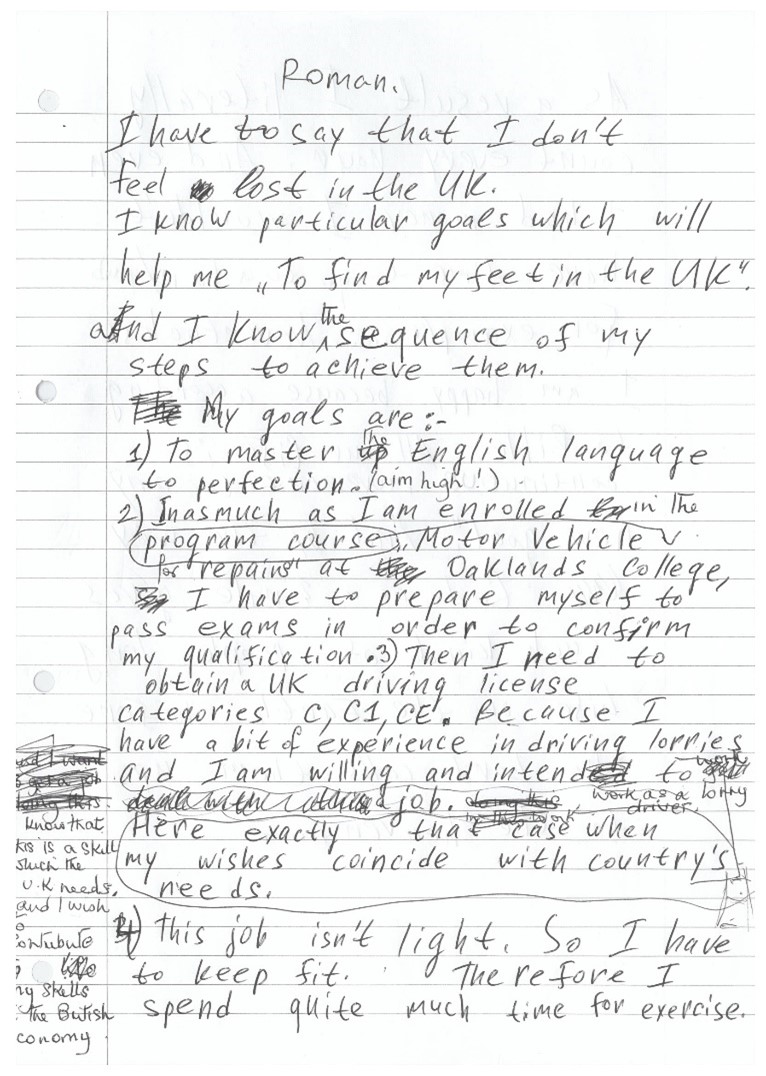 Roman.
I have to say that I don't
feel lost in the UK.
I know particular goals which will
help me „To find my feet in the UK".
And I know the sequence of my
steps to achieve them.
The My goals are :-
1) To master the English language
to perfection. (aim high!)
2) Inasmuch as I am enrolled in the
program course „Motor Vehicle
for repairs" at Oaklands College,
I have to prepare myself to
pass exams in order to confirm
my qualification. 3) Then I need to
obtain a UK driving license
categories C, C1, CE. Because I
have a bit of experience in driving lorries
and I am willing and intended to work
job. doing this work as a lorry
driver.
Here exactly that case when
my wishes coincide with country's
needs.
4) This job isn't light. So I have
to keep fit. Therefore I
spend quite much time for exercise.
and I want
to get a job
doing this.
know that
this is a skill
which the
U.K needs,
and I wish
to
contribute
my skills
the British
conomy